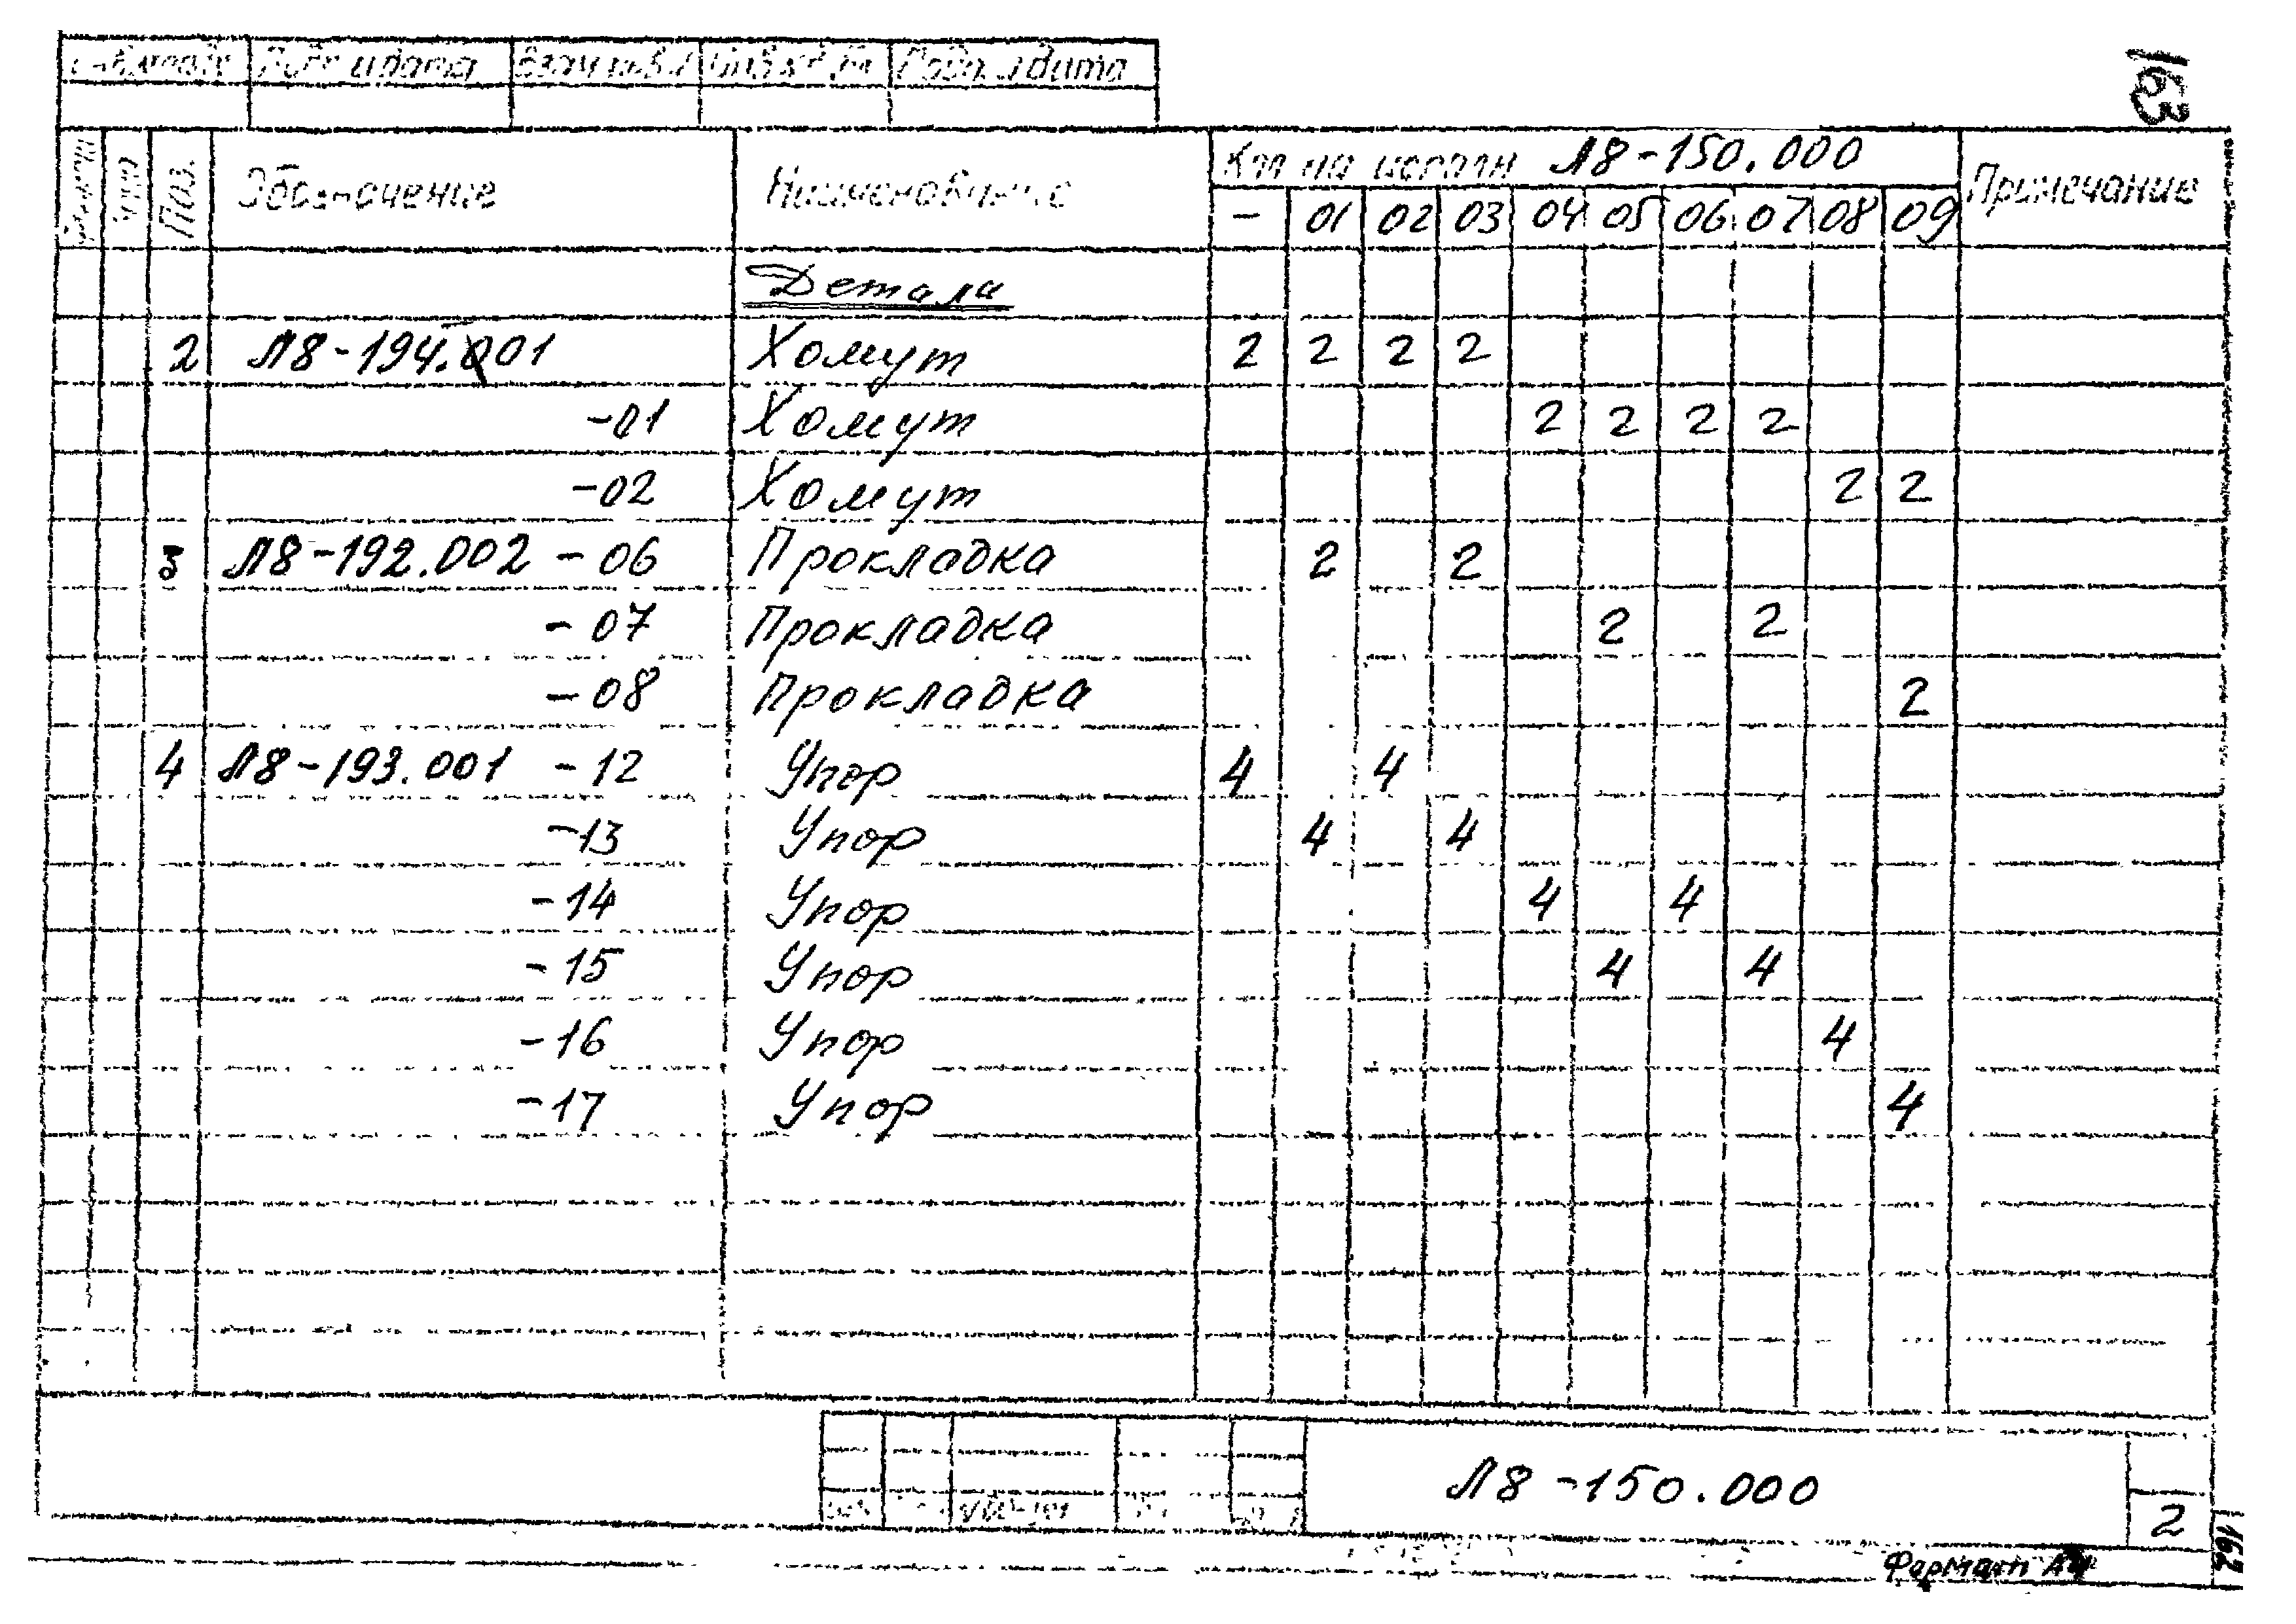 163
Подп и дата Взам инв.№ Подп. и дата
Поз. Обозначение Наименование Кол на исполн Л8-150.000 Примечание
- 01 02 03 04 05 06 07 08 09
Детали
2 Л8-194.001 Хомут 2 2 2 2
-01 Хомут 2 2 2 2
-02 Хомут 2 2
3 Л8-192.002 -06 Прокладка 2 2
-07 Прокладка 2 2
-08 Прокладка 2
4 Л8-193.001 -12 Упор 4 4
-13 Упор 4 4
-14 Упор 4 4
-15 Упор 4 4
-16 Упор 4
-17 Упор 4
Л8-150.000
2
162
Формат А4